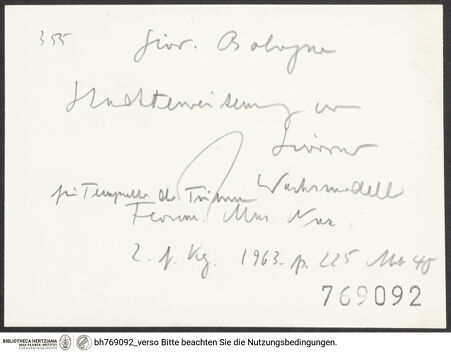 355
Giov. Bologna
Stadterweiterung von
Livorno
für Tempietto der Tribuna Wachsmodell
Florenz. Mus. Naz.
Z. f. Kg. 1963. p. 225 Abb 40
769092
BIBLIOTHECA HERTZIANA
MAX-PLANCK-INSTITUT
FÜR KUNSTGESCHICHTE
bh769092_verso Bitte beachten Sie die Nutzungsbedingungen.